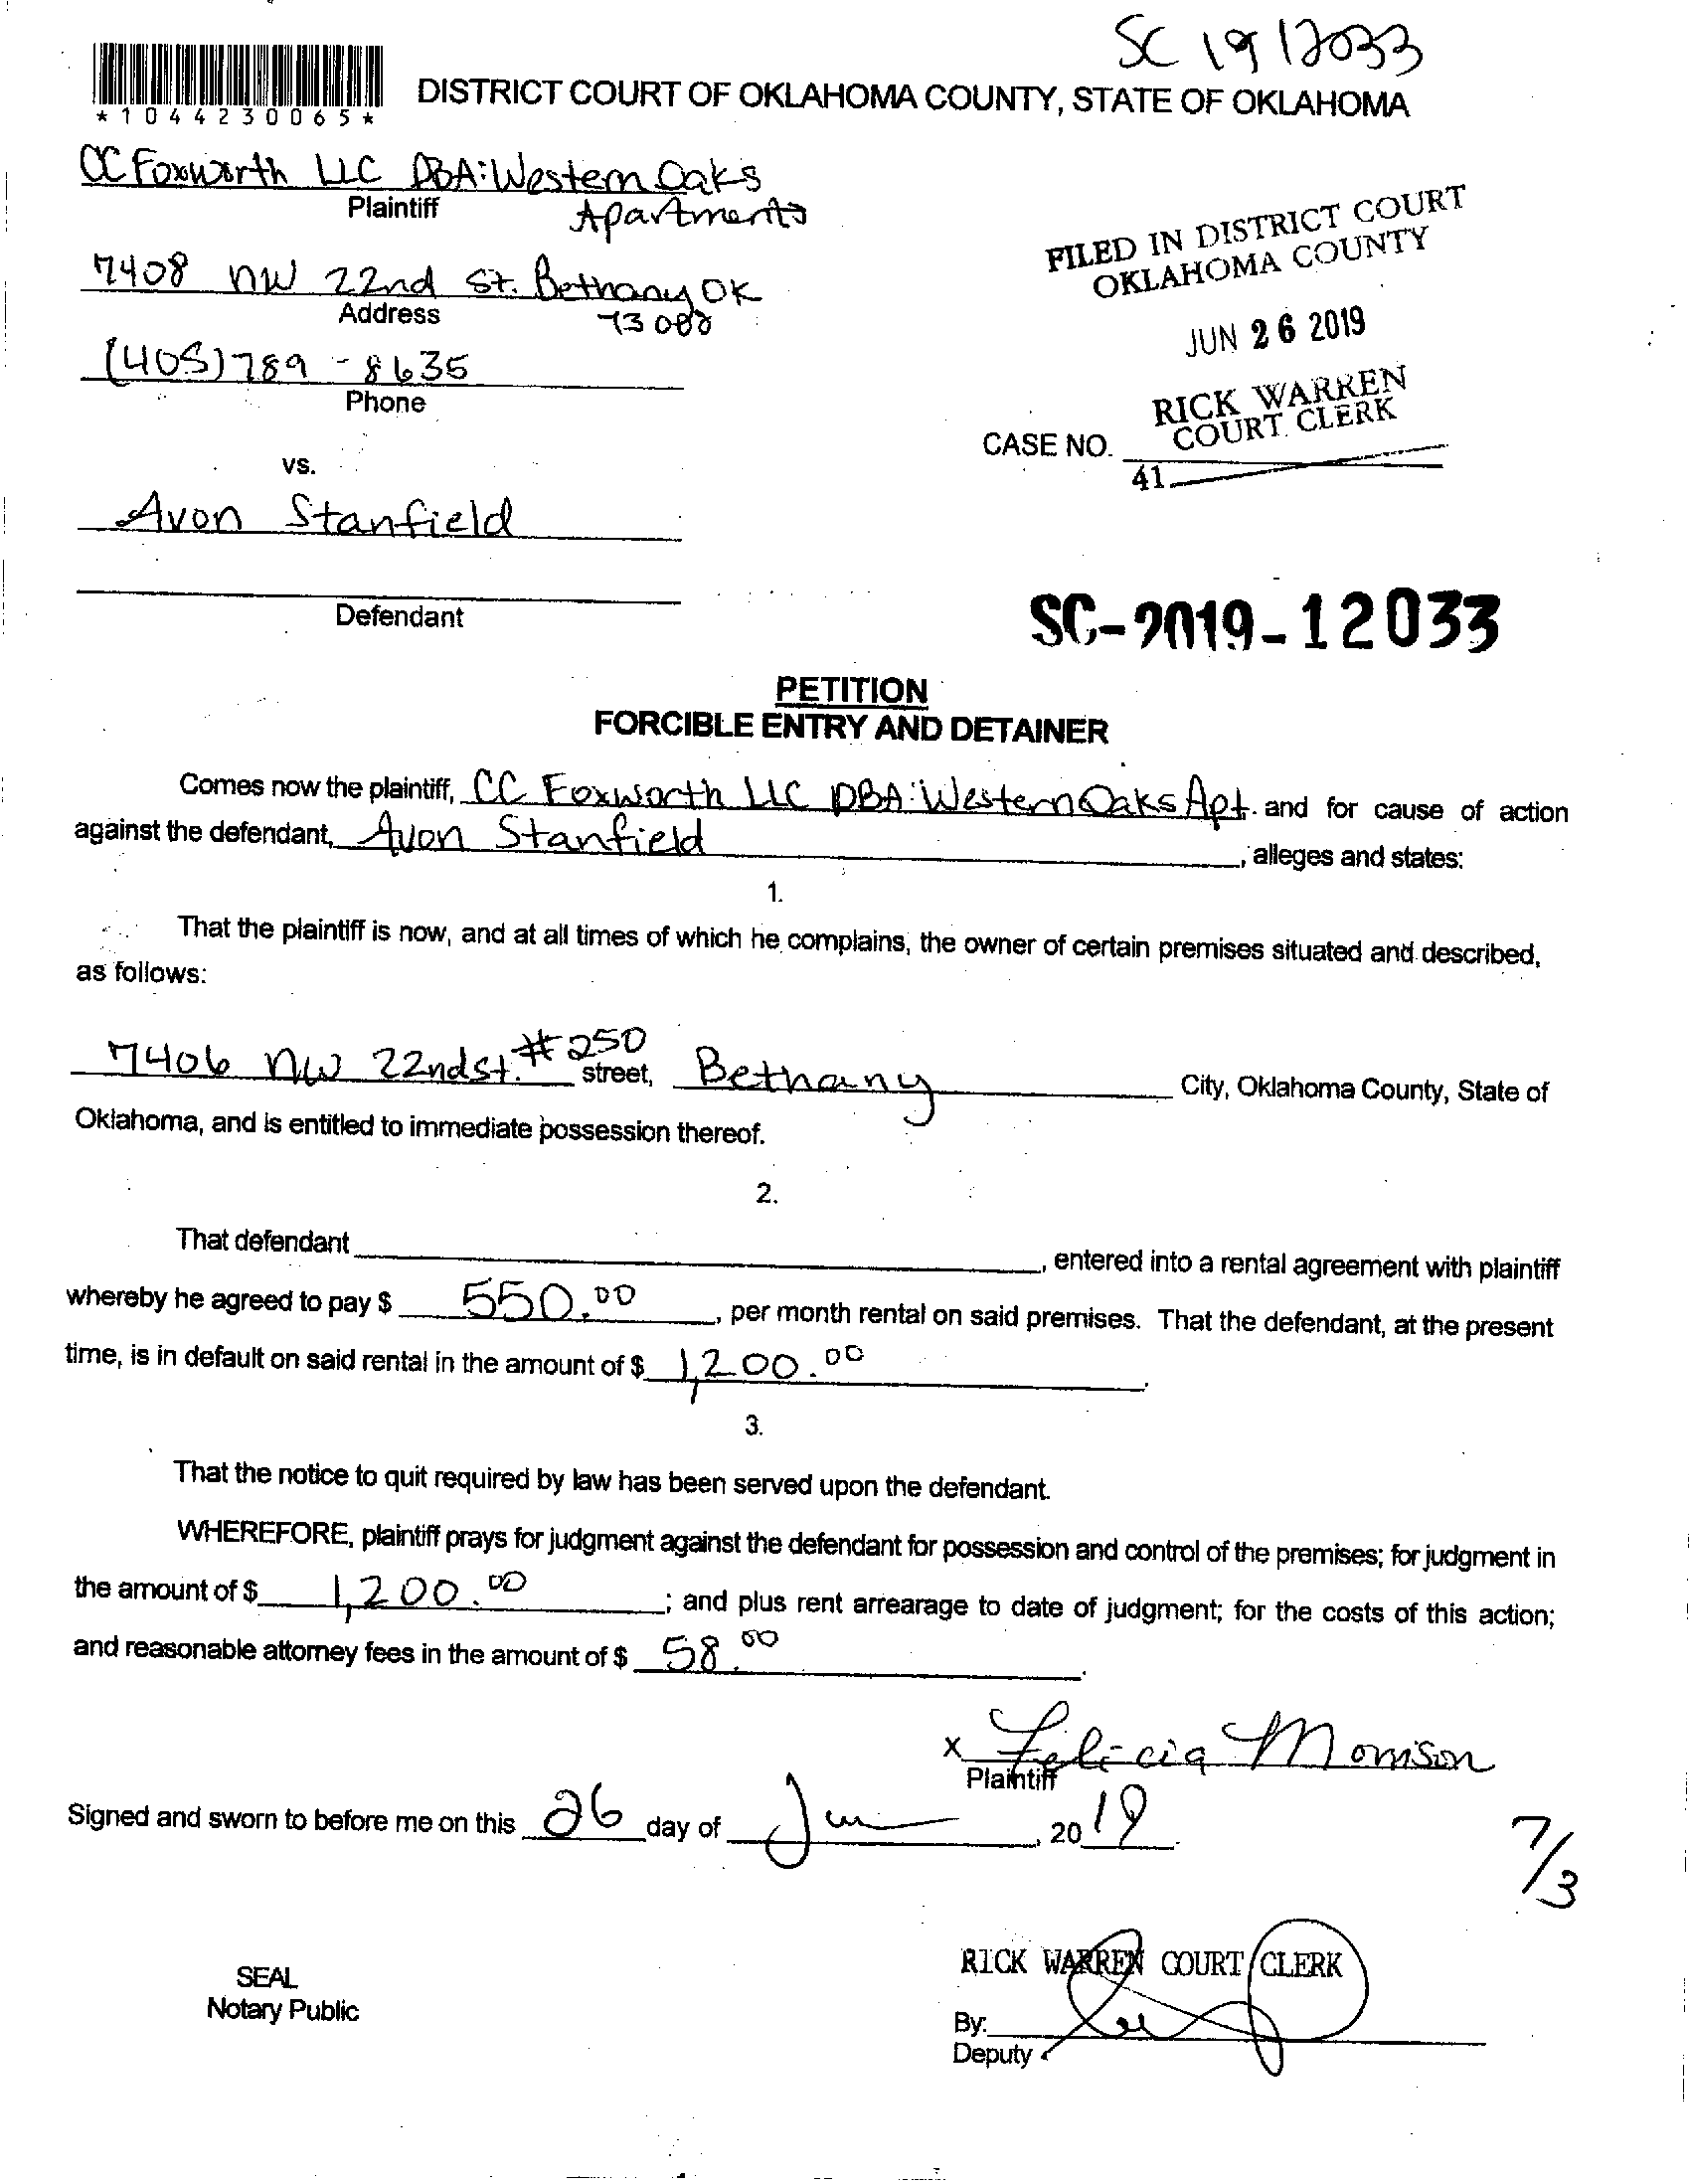 SC 19 12033
*1044230065*
DISTRICT COURT OF OKLAHOMA COUNTY, STATE OF OKLAHOMA
CC Foxworth LLC DBA: Western Oaks
Plaintiff
Apartments
7408 NW 22nd St. Bethany OK
Address
73008
(405) 789 - 8635
Phone
FILED IN DISTRICT COURT
OKLAHOMA COUNTY
JUN 26 2019
RICK WARREN
COURT CLERK
CASE NO.
41
vs.
Avon Stanfield
Defendant
SC-2019-12033
PETITION
FORCIBLE ENTRY AND DETAINER
Comes now the plaintiff, CC Foxworth LLC DBA: Western Oaks Apt. and for cause of action
against the defendant, Avon Stanfield, alleges and states:
1.
That the plaintiff is now, and at all times of which he complains, the owner of certain premises situated and described,
as follows:
7406 NW 22nd St. #250 street, Bethany City, Oklahoma County, State of
Oklahoma, and is entitled to immediate possession thereof.
2.
That defendant , entered into a rental agreement with plaintiff
whereby he agreed to pay $ 550.00, per month rental on said premises. That the defendant, at the present
time, is in default on said rental in the amount of $ 1,200.00.
3.
That the notice to quit required by law has been served upon the defendant.
WHEREFORE, plaintiff prays for judgment against the defendant for possession and control of the premises; for judgment in
the amount of $ 1,200.00; and plus rent arrearage to date of judgment; for the costs of this action;
and reasonable attorney fees in the amount of $ 58.00.
x Felicia Morrison
Plaintiff
Signed and sworn to before me on this 26 day of Jun, 2019.
7/3
SEAL
Notary Public
RICK WARREN COURT CLERK
By:
Deputy